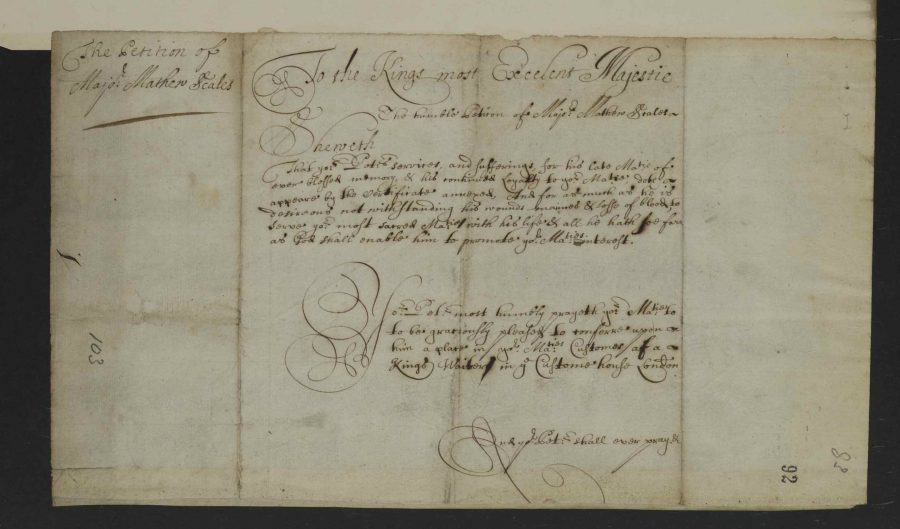 The Petition of
Majo:r Mathew Scales
To the Kings most Excelent Majestie
The humble Petition of Majo:r Mathew Scales
Sheweth
That yo:r Pet:rs services, and sufferings for his late Ma:tie of
ever blessed memory, & his continued Loyalty to yo:r Ma:tie doth
appeare by the Certificate annexed, And for as much as he is
desireous not withstanding his wounds, maimes & losse of blood to
serve yo:r most sacred Ma:tie with his life & all he hath soe farr
as God shall enable him to promote yo:r Ma:ties interest.
Yo:r Pet:r most humbly prayeth yo:r Ma:tie
to be graciously pleased to conferre upon
him a place in yo:r Ma:ties Customes, of a
Kings Waiter in ye Custome house London
And yo:r Pet:r shall ever pray &
103
92
92